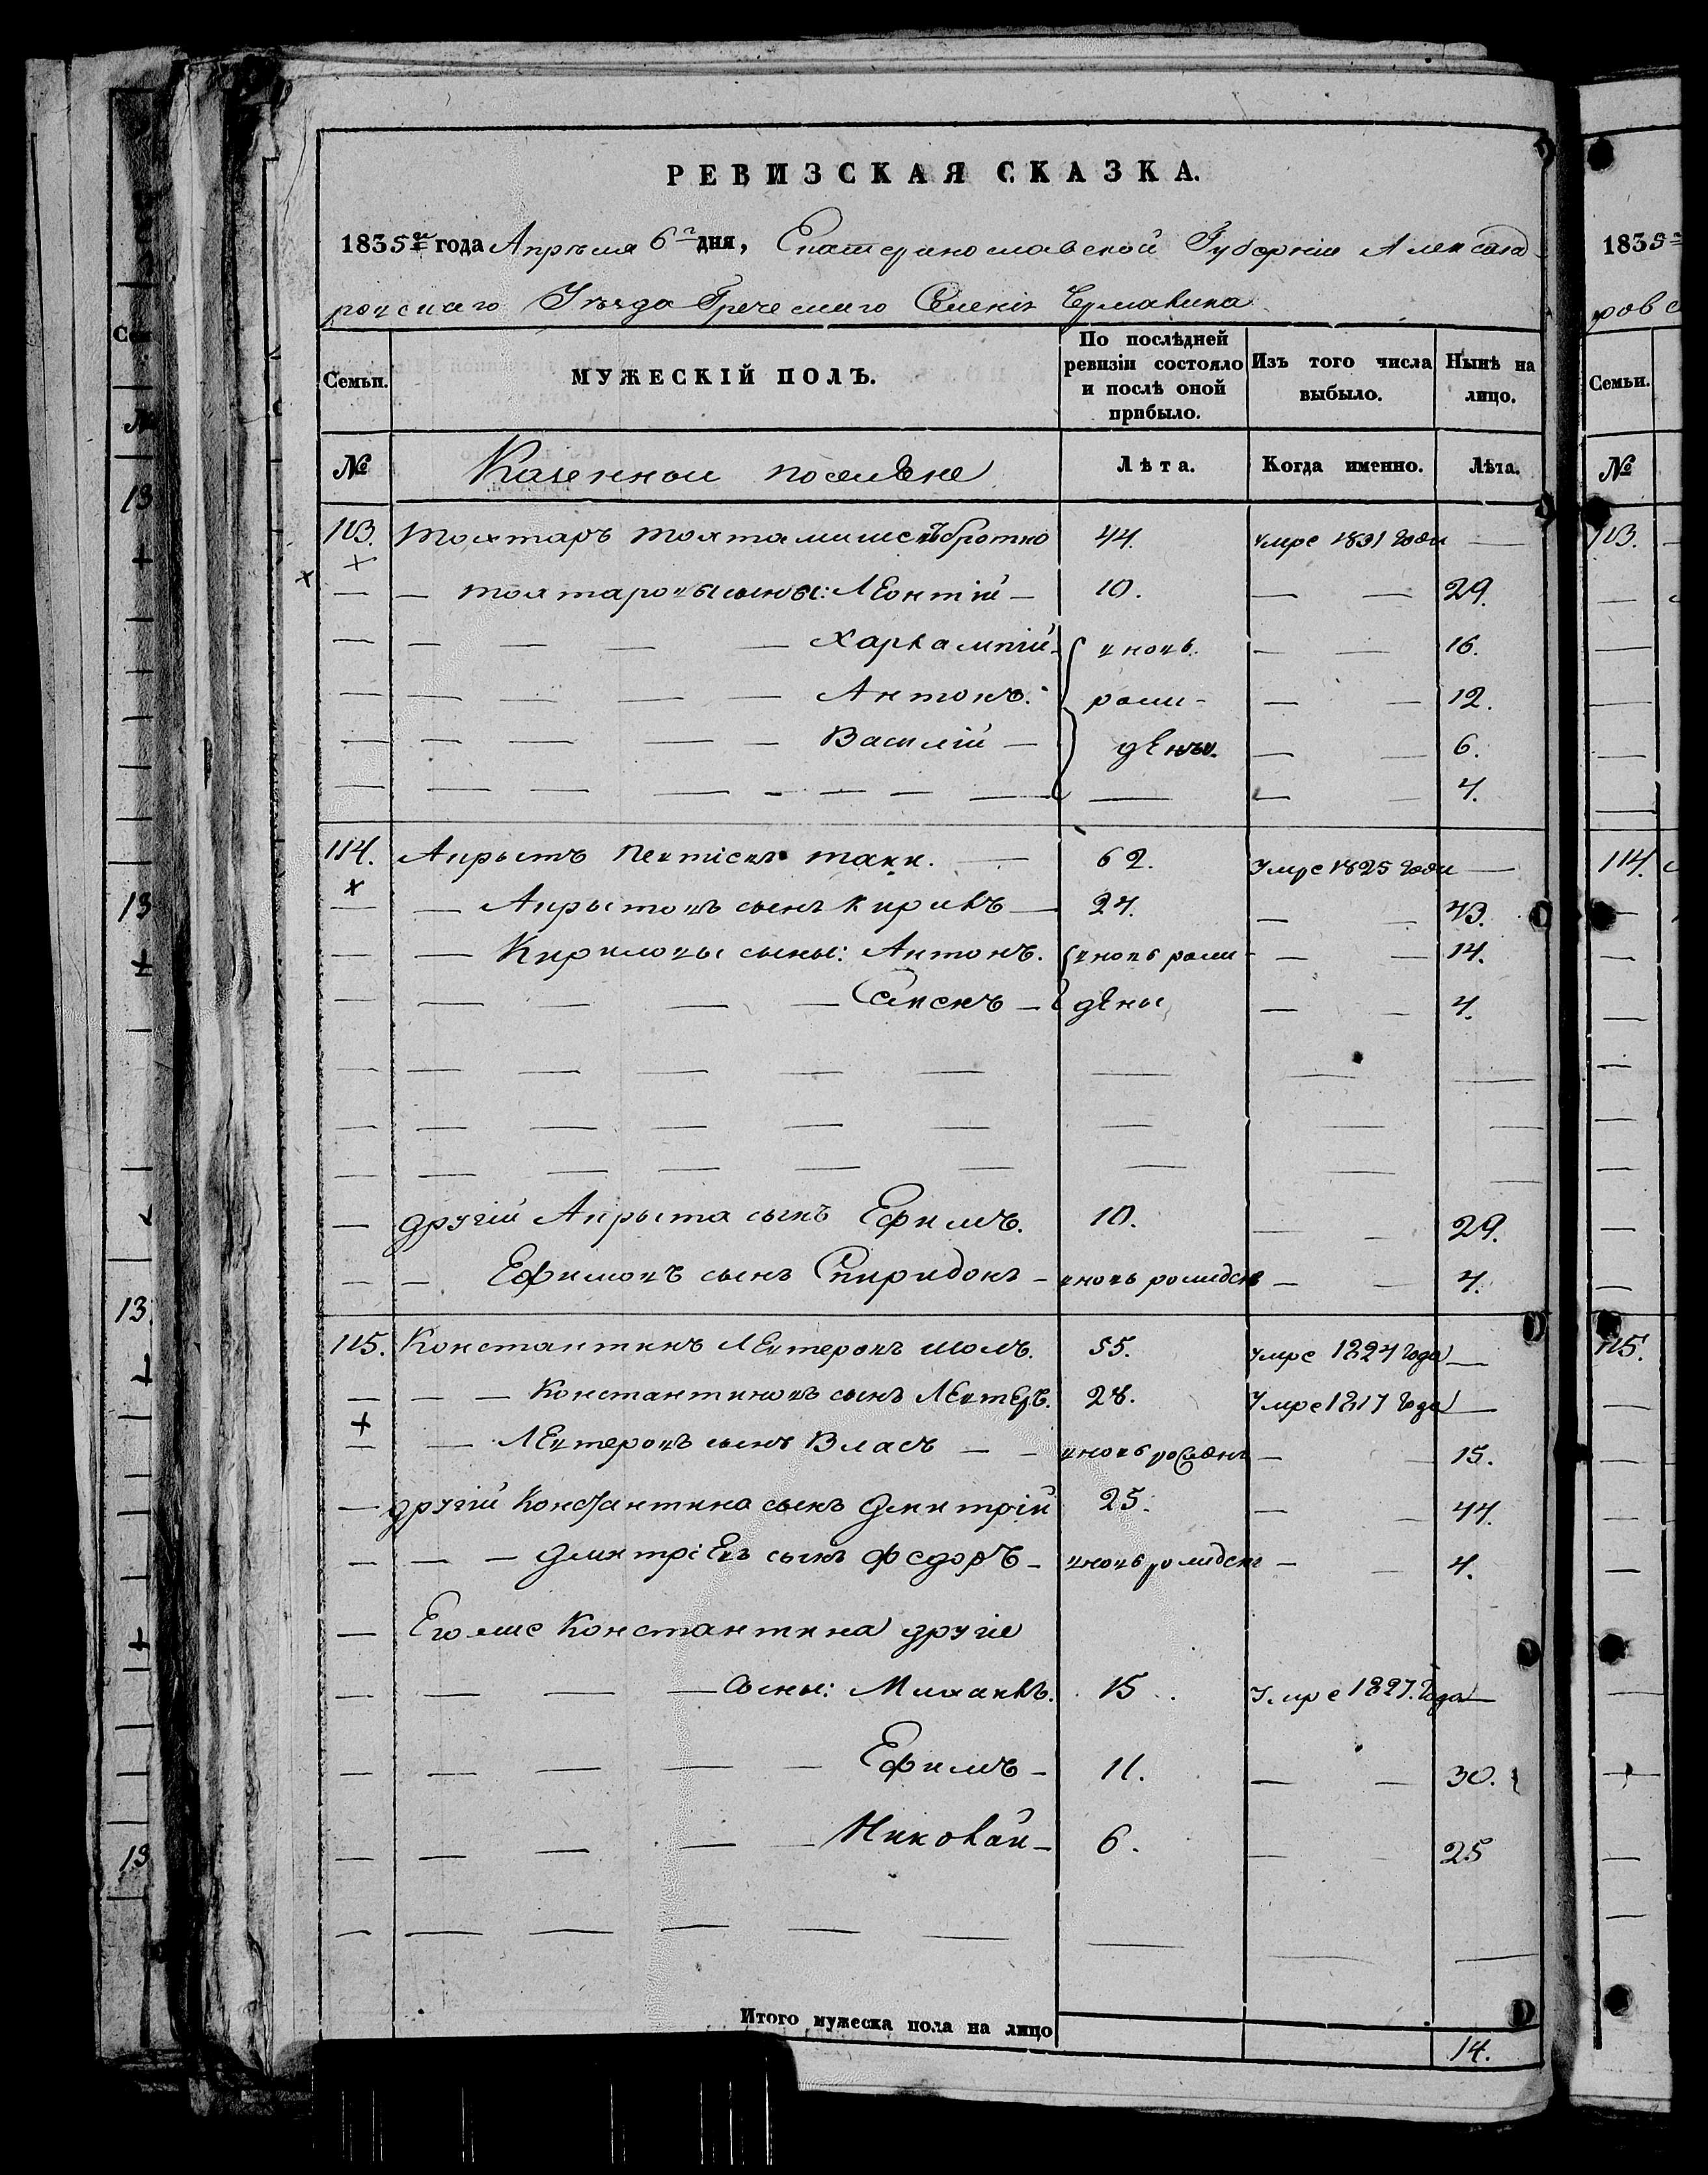 РЕВИЗСКАЯ СКАЗКА.
1835го года Апреля 6го дня, Екатеринославской Губернии Александ
ровскаго Уѣзда Греческаго Селенія Чермалика
Семьи.
МУЖЕСКІЙ ПОЛЪ.
По послѣдней ревизіи состояло и послѣ оной прибыло.
Изъ того числа выбыло.
Нынѣ на лицо.
№
Казенныи поселяне
Лѣта.
Когда именно.
Лѣта.
113. Тохтаръ 44. умре 1831 годи
— Тохтаровы сыны: Леонтій — 10. — — 29.
— Харлампій { вновь — — 16.
— Антонъ. рожи- — — 12.
— Василій — дены. — — 6.
— 4.
114. Апрыстъ 62. Умре 1825 годи —
— Апрыстовъ сынъ Кирилъ — 24. — — 43.
— Кириловы сыны: Антонъ. { вновь рожи- — — 14.
— дены — — 4.
— другій Апрыста сынъ Ефимъ. 10. — — 29.
— Ефимовъ сынъ Спиридонъ — вновь рожиденъ — — 4.
115. Константинъ Лефтеровъ 55. Умре 1824 года —
— Константиновъ сынъ Лефтеръ. 28. Умре 1817 года —
— Лефтеровъ сынъ Власъ — — вновь рожденъ — — 15.
— другій Константина сынъ Дмитрій 25. — — 44.
— Дмитріевъ сынъ Федоръ — вновь рожиденъ — — 4.
— Егоже Константина другіе
— сыны: Михаилъ. 15. Умре 1827. года —
— Ефимъ — 11. — — 30.
— Николай — 6. — — 25
Итого мужеска пола на лицо
14.
1835
ров
Семьи.
№
113.
114.
115.